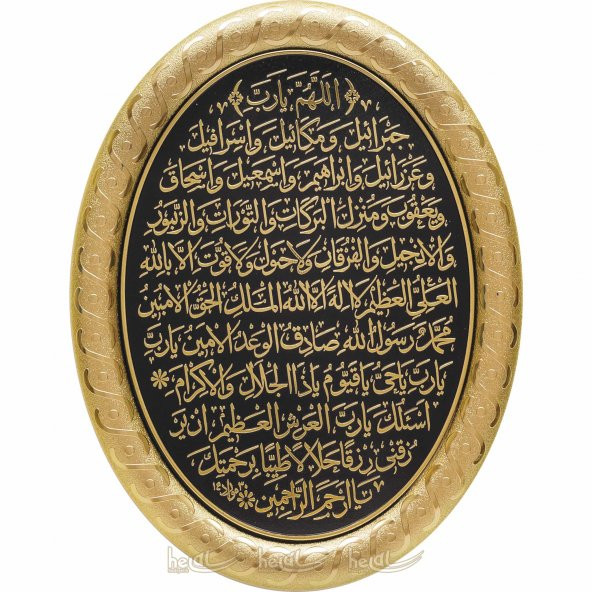 ﴿ اللهم يارب ﴾
جبرائيل وميكائيل واسرافيل
وعزرائيل وابراهيم واسمعيل واسحاق
ويعقوب ومنزل البركات والتورات والزبور
والانجيل والفرقان ولا حول ولا قوت الا بالله
العلى العظيم لا اله الا الله الملك الحق المبين
محمد رسول الله صادق الوعد الامين يارب
يارب ياحى ياقيوم ياذا الجلال والاكرام *
اسئلك يارب العرش العظيم ان ير
زقنى رزقا حلالا طيبا برحمتك
يا ارحم الراحمين *
helal helal helal